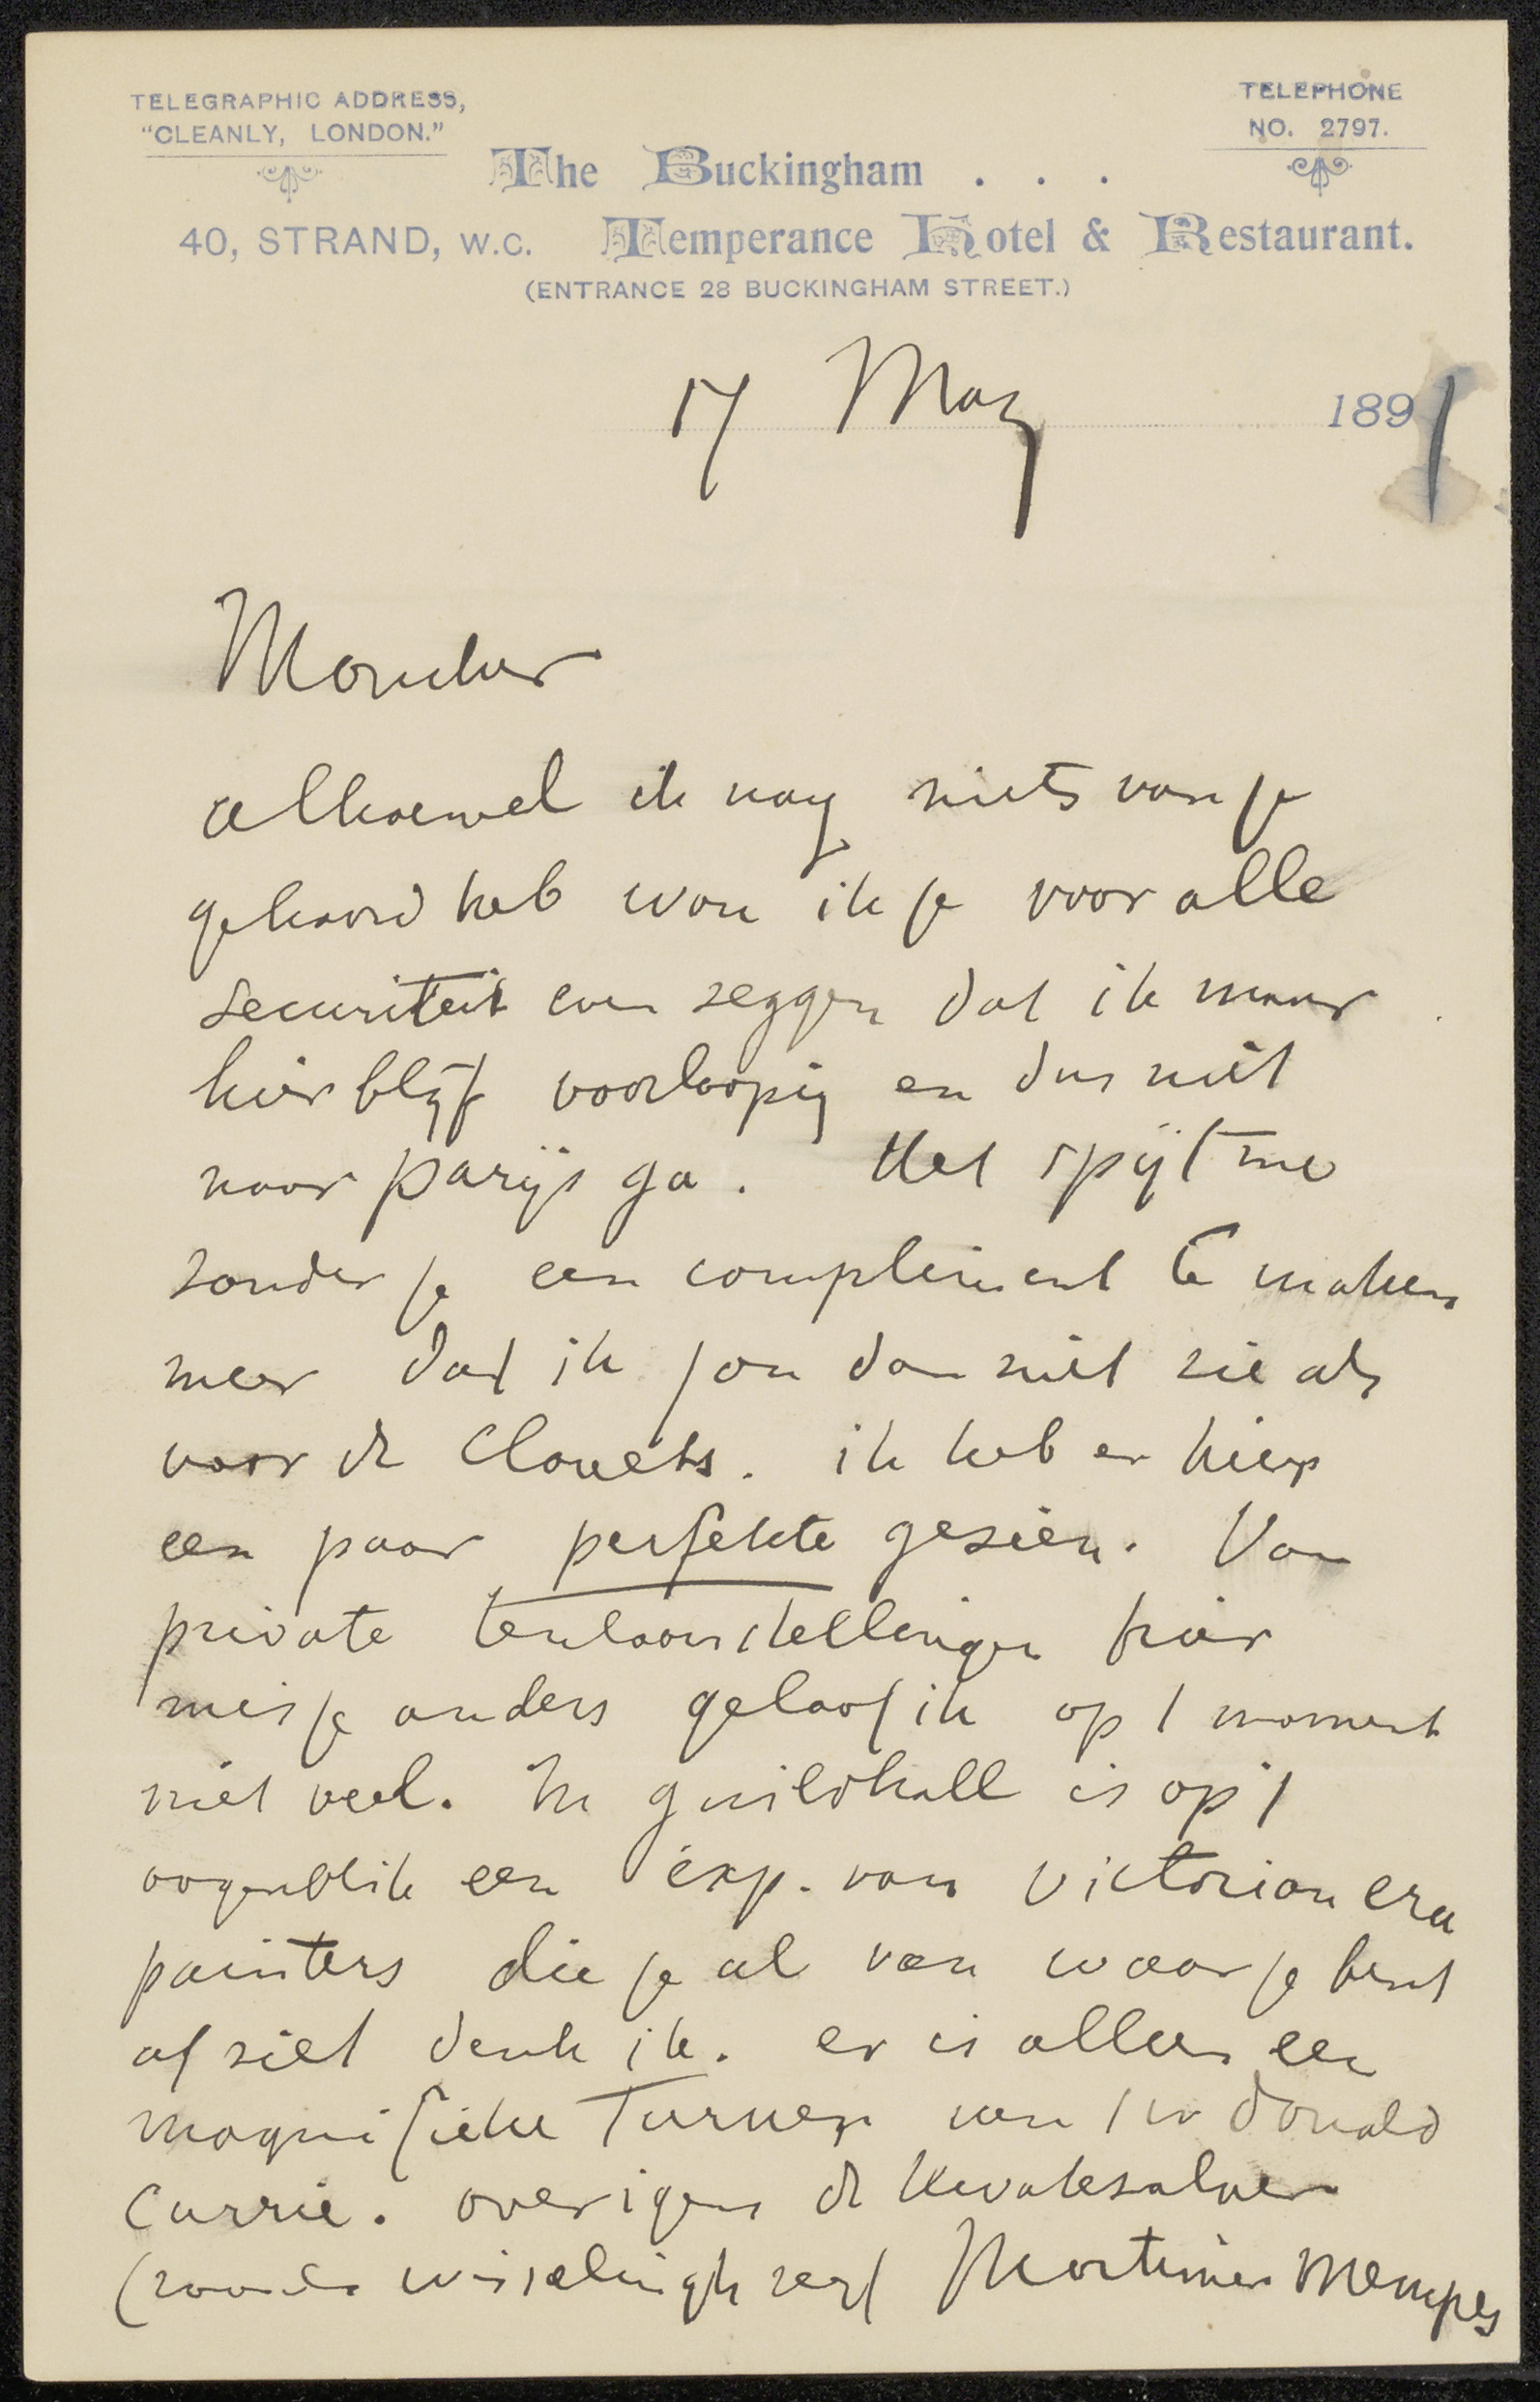 TELEGRAPHIC ADDRESS,
"CLEANLY, LONDON."
TELEPHONE
NO. 2797.
The Buckingham . . .
40, STRAND, W.C. Temperance Hotel & Restaurant.
(ENTRANCE 28 BUCKINGHAM STREET.)
17 May 1897
Moncher
alhoewel ik nog niets van je
gehoord heb wou ik je voor alle
securiteit even zeggen dat ik maar
hier blijf voorloopig en dus niet
naar parijs ga. Het spijt me
zonder je een compliment te maken
meer dat ik jou dan niet zie als
voor de Clouets. ik heb er hier
een paar perfekte gezien. Van
private tentoonstellingen hier
mis je anders geloof ik op 't moment
niet veel. In guildhall is op 't
oogenblik een exp. van victorian era
painters die je al van waar je bent
af ziet denk ik. er is alleen een
magnifieke Turner van Sir donald
Currie. overigens de kwakzalver
(zooals wisselingh zegt Mortimer Mempes